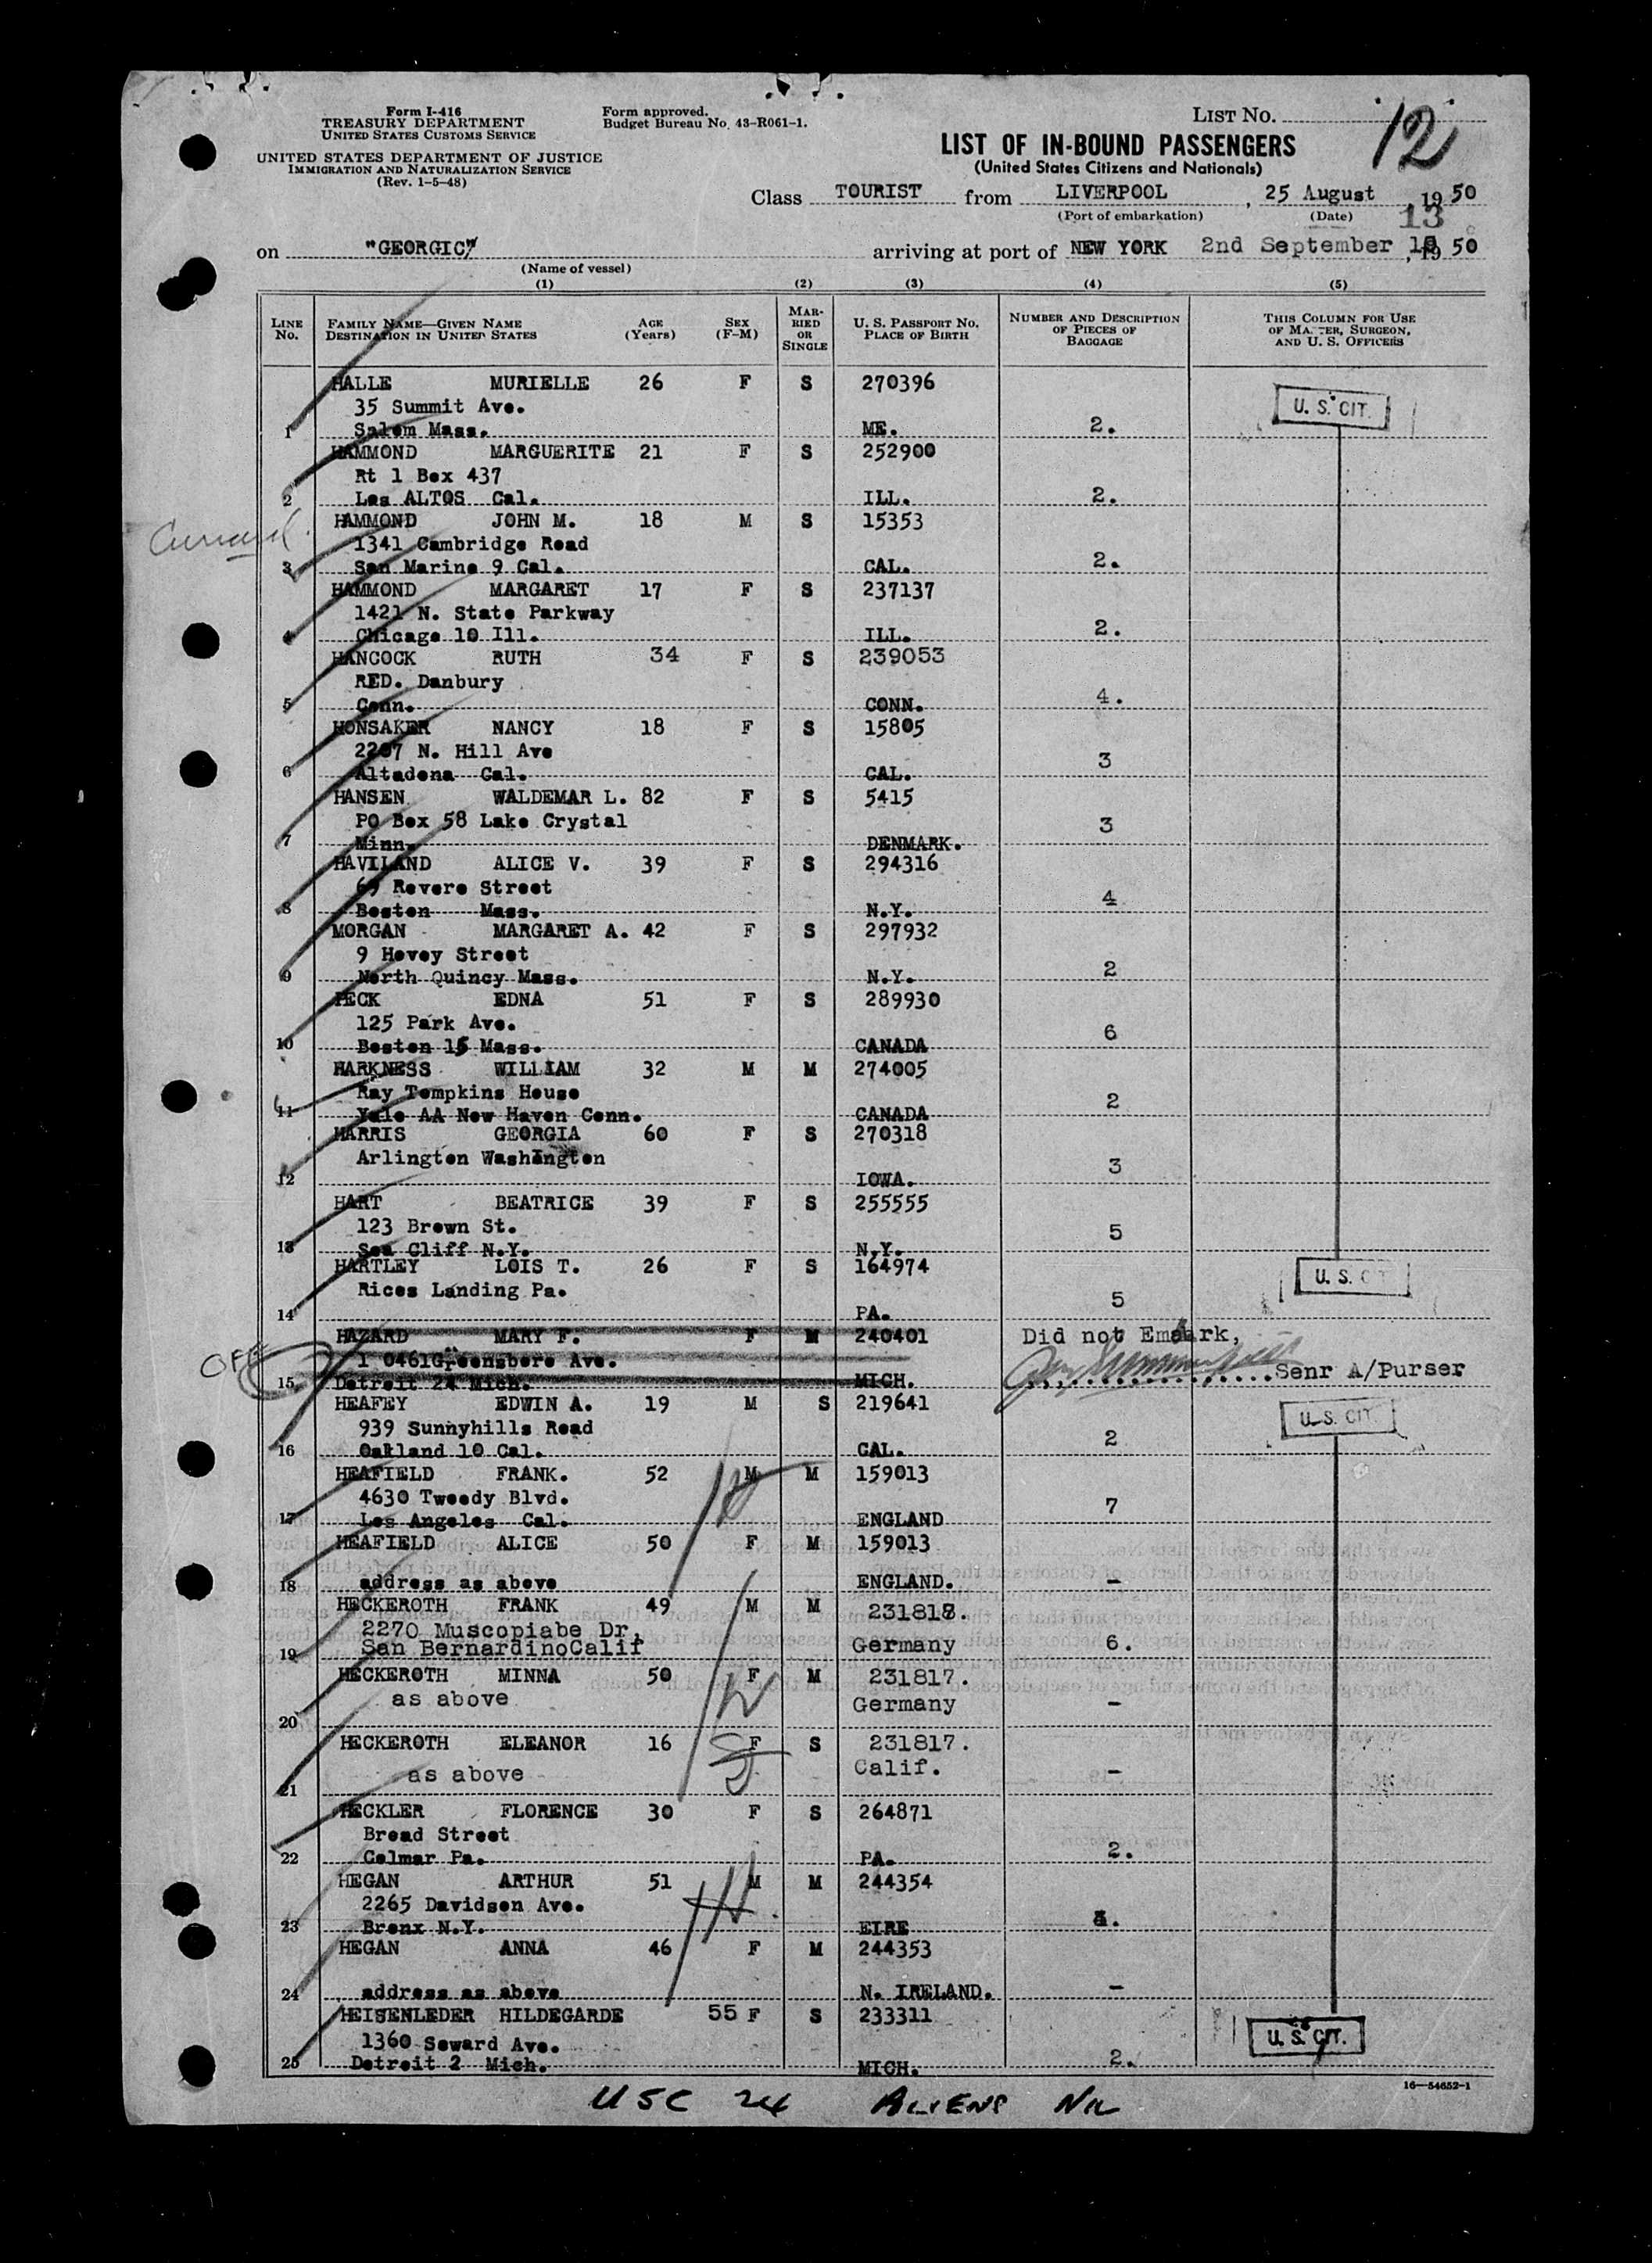 Form I-416
TREASURY DEPARTMENT
UNITED STATES CUSTOMS SERVICE
UNITED STATES DEPARTMENT OF JUSTICE
IMMIGRATION AND NATURALIZATION SERVICE
(Rev. 1-5-48)
Form approved.
Budget Bureau No. 43-R061-1.
LIST NO.
12
LIST OF IN-BOUND PASSENGERS
(United States Citizens and Nationals)
Class TOURIST from LIVERPOOL, 25 August, 1950
(Port of embarkation) (Date)
13
on "GEORGIC" arriving at port of NEW YORK 2nd September, 1950
(Name of vessel)
(1) (2) (3) (4) (5)
LINE NO.
FAMILY NAME—GIVEN NAME
DESTINATION IN UNITED STATES
AGE (Years)
SEX (F-M)
MARRIED OR SINGLE
U. S. PASSPORT NO.
PLACE OF BIRTH
NUMBER AND DESCRIPTION OF PIECES OF BAGGAGE
THIS COLUMN FOR USE OF MASTER, SURGEON, AND U. S. OFFICERS
HALLE MURIELLE 26 F S 270396
35 Summit Ave. U. S. CIT.
1 Salem Mass. ME. 2.
HAMMOND MARGUERITE 21 F S 252900
Rt 1 Box 437
2 Los ALTOS Cal. ILL. 2.
HAMMOND JOHN M. 18 M S 15353
Cunard.
1341 Cambridge Road
3 San Marino 9 Cal. CAL. 2.
HAMMOND MARGARET 17 F S 237137
1421 N. State Parkway
4 Chicago 10 Ill. ILL. 2.
HANCOCK RUTH 34 F S 239053
RED. Danbury
5 Conn. CONN. 4.
HONSAKER NANCY 18 F S 15805
2207 N. Hill Ave
6 Altadena Cal. CAL. 3
HANSEN WALDEMAR L. 82 F S 5415
PO Box 58 Lake Crystal
7 Minn. DENMARK. 3
HAVILAND ALICE V. 39 F S 294316
69 Revere Street
8 Boston Mass. N.Y. 4
MORGAN MARGARET A. 42 F S 297932
9 Hovey Street
9 North Quincy Mass. N.Y. 2
PECK EDNA 51 F S 289930
125 Park Ave.
10 Boston 15 Mass. CANADA 6
HARKNESS WILLIAM 32 M M 274005
Ray Tompkins House
11 Yale AA New Haven Conn. CANADA 2
HARRIS GEORGIA 60 F S 270318
Arlington Washington
12 IOWA. 3
HART BEATRICE 39 F S 255555
123 Brown St.
13 Sea Cliff N.Y. N.Y. 5
HARTLEY LOIS T. 26 F S 164974
Rices Landing Pa. U. S. CIT
14 PA. 5
HAZARD MARY F. F M 240401 Did not Embark,
OFF
1 0461Greensboro Ave.
15 Detroit 24 Mich. MICH. Senr A/Purser
HEAFEY EDWIN A. 19 M S 219641
939 Sunnyhills Road U. S. CIT.
16 Oakland 10 Cal. CAL. 2
HEAFIELD FRANK. 52 M M 159013
4630 Tweedy Blvd.
17 Los Angeles Cal. ENGLAND 7
HEAFIELD ALICE 50 F M 159013
18 address as above ENGLAND. -
HECKEROTH FRANK 49 M M 231818.
2270 Muscopiabe Dr,
19 San BernardinoCalif Germany 6.
HECKEROTH MINNA 50 F M 231817.
as above Germany -
20
HECKEROTH ELEANOR 16 F S 231817.
as above Calif. -
21
HECKLER FLORENCE 30 F S 264871
Broad Street
22 Colmar Pa. PA. 2.
HEGAN ARTHUR 51 M M 244354
2265 Davidson Ave.
23 Bronx N.Y. EIRE
HEGAN ANNA 46 F M 244353
24 address as above N. IRELAND. -
HEISENLEDER HILDEGARDE 55 F S 233311
1360 Seward Ave. U. S. CIT.
25 Detroit 2 Mich. MICH. 2.
16—54652-1
USC 24 ALIENS NIL